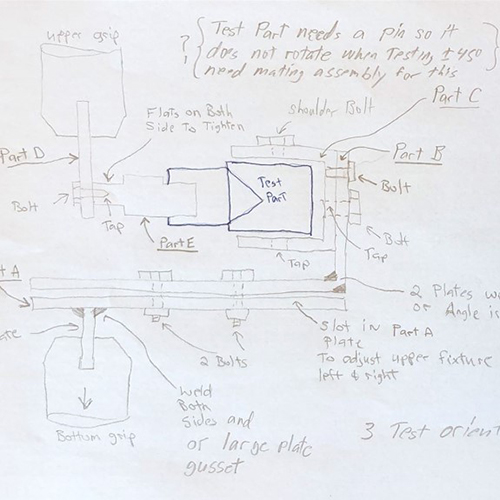 upper grip
? { Test Part needs a pin so it
does not rotate when Testing ± 450
need mating assembly for this
Flats on Both
Side To Tighten
Shoulder Bolt
Part C
Part D
Part B
Test
Part
Bolt
Bolt
Tap
Part E
Bolt
Tap
Tap
t A
2 Plates we
or Angle is
2 Bolts
slot in Part A
plate
To adjust upper fixture
left & right
ate
weld
Both
Sides and
or large plate
gusset
Bottom grip
3 Test orient